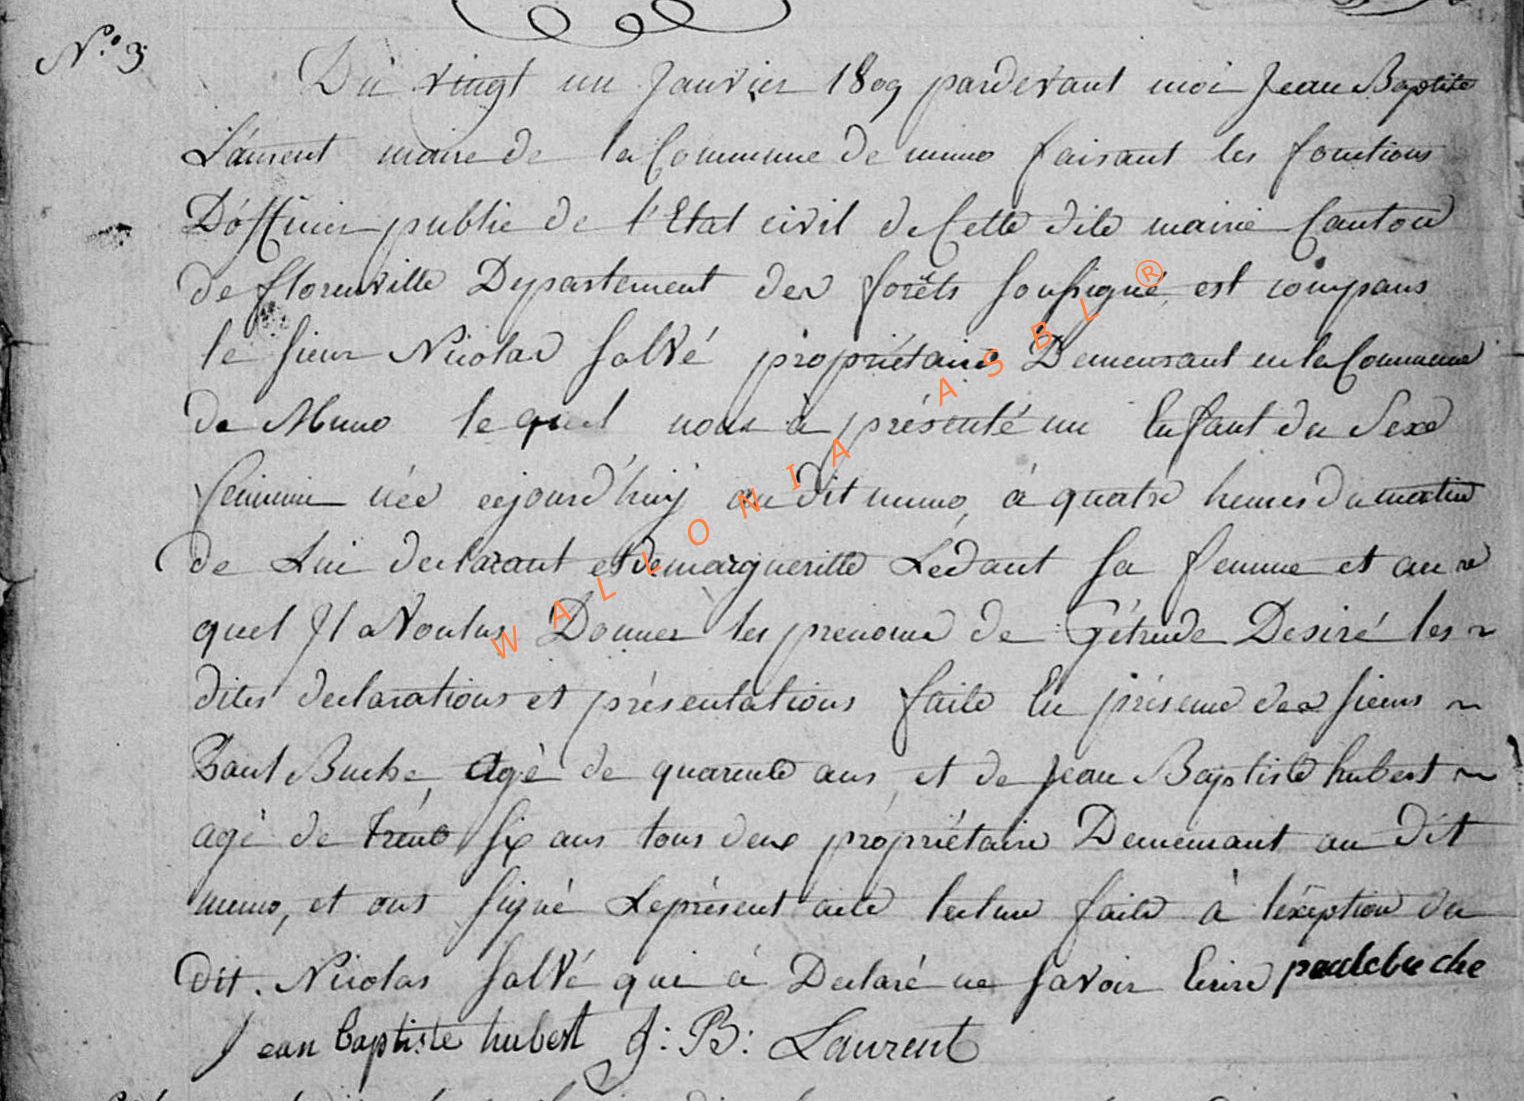 N.o 3
Du vingt un Janvier 1809 pardevant moi Jean Baptiste
Laurent maire de la Commune de muno faisant les fonctions
D'officier public de l'Etat civil de Cette dite mairie Canton
de florenville Departement des forêts soussigné est comparus
le sieur Nicolas salvé propriétaire Demeurant en la Commune
de Muno lequel nous à présenté un Enfant du Sexe
feminin née cejourd'huÿ au dit muno, à quatre heures du matin
de Lui declarant et de margueritte Ledant sa femme et au ~
quel Il a Voulus Donner les prenoms de Gétrude Desiré les ~
dites declarations et présentations faite En présence des sieurs ~
Paul Buche, agé de quarente ans, et de Jean Baptiste hubert ~
agé de trente six ans tous deux propriétaire Demeurant au dit
muno, et ont signé Le présent acte lecture faite à l'éxception du
dit. Nicolas salvé qui à Declaré ne savoir Ecrire paulebuche
Jean baptiste hubert J: B: Laurent
WALLONIA ASBL ®